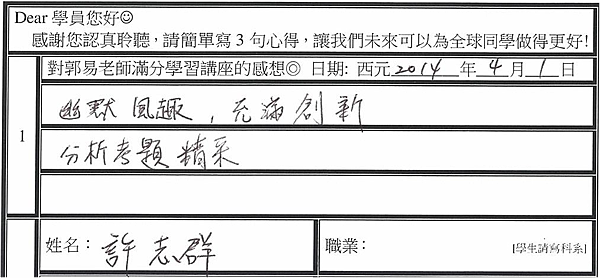 Dear 學員您好☺
感謝您認真聆聽，請簡單寫 3 句心得，讓我們未來可以為全球同學做得更好!
對郭易老師滿分學習講座的感想◎ 日期: 西元 2014 年 4 月 1 日
1
幽默風趣，充滿創新
分析考題精采
姓名： 許志群 職業： [學生請寫科系]